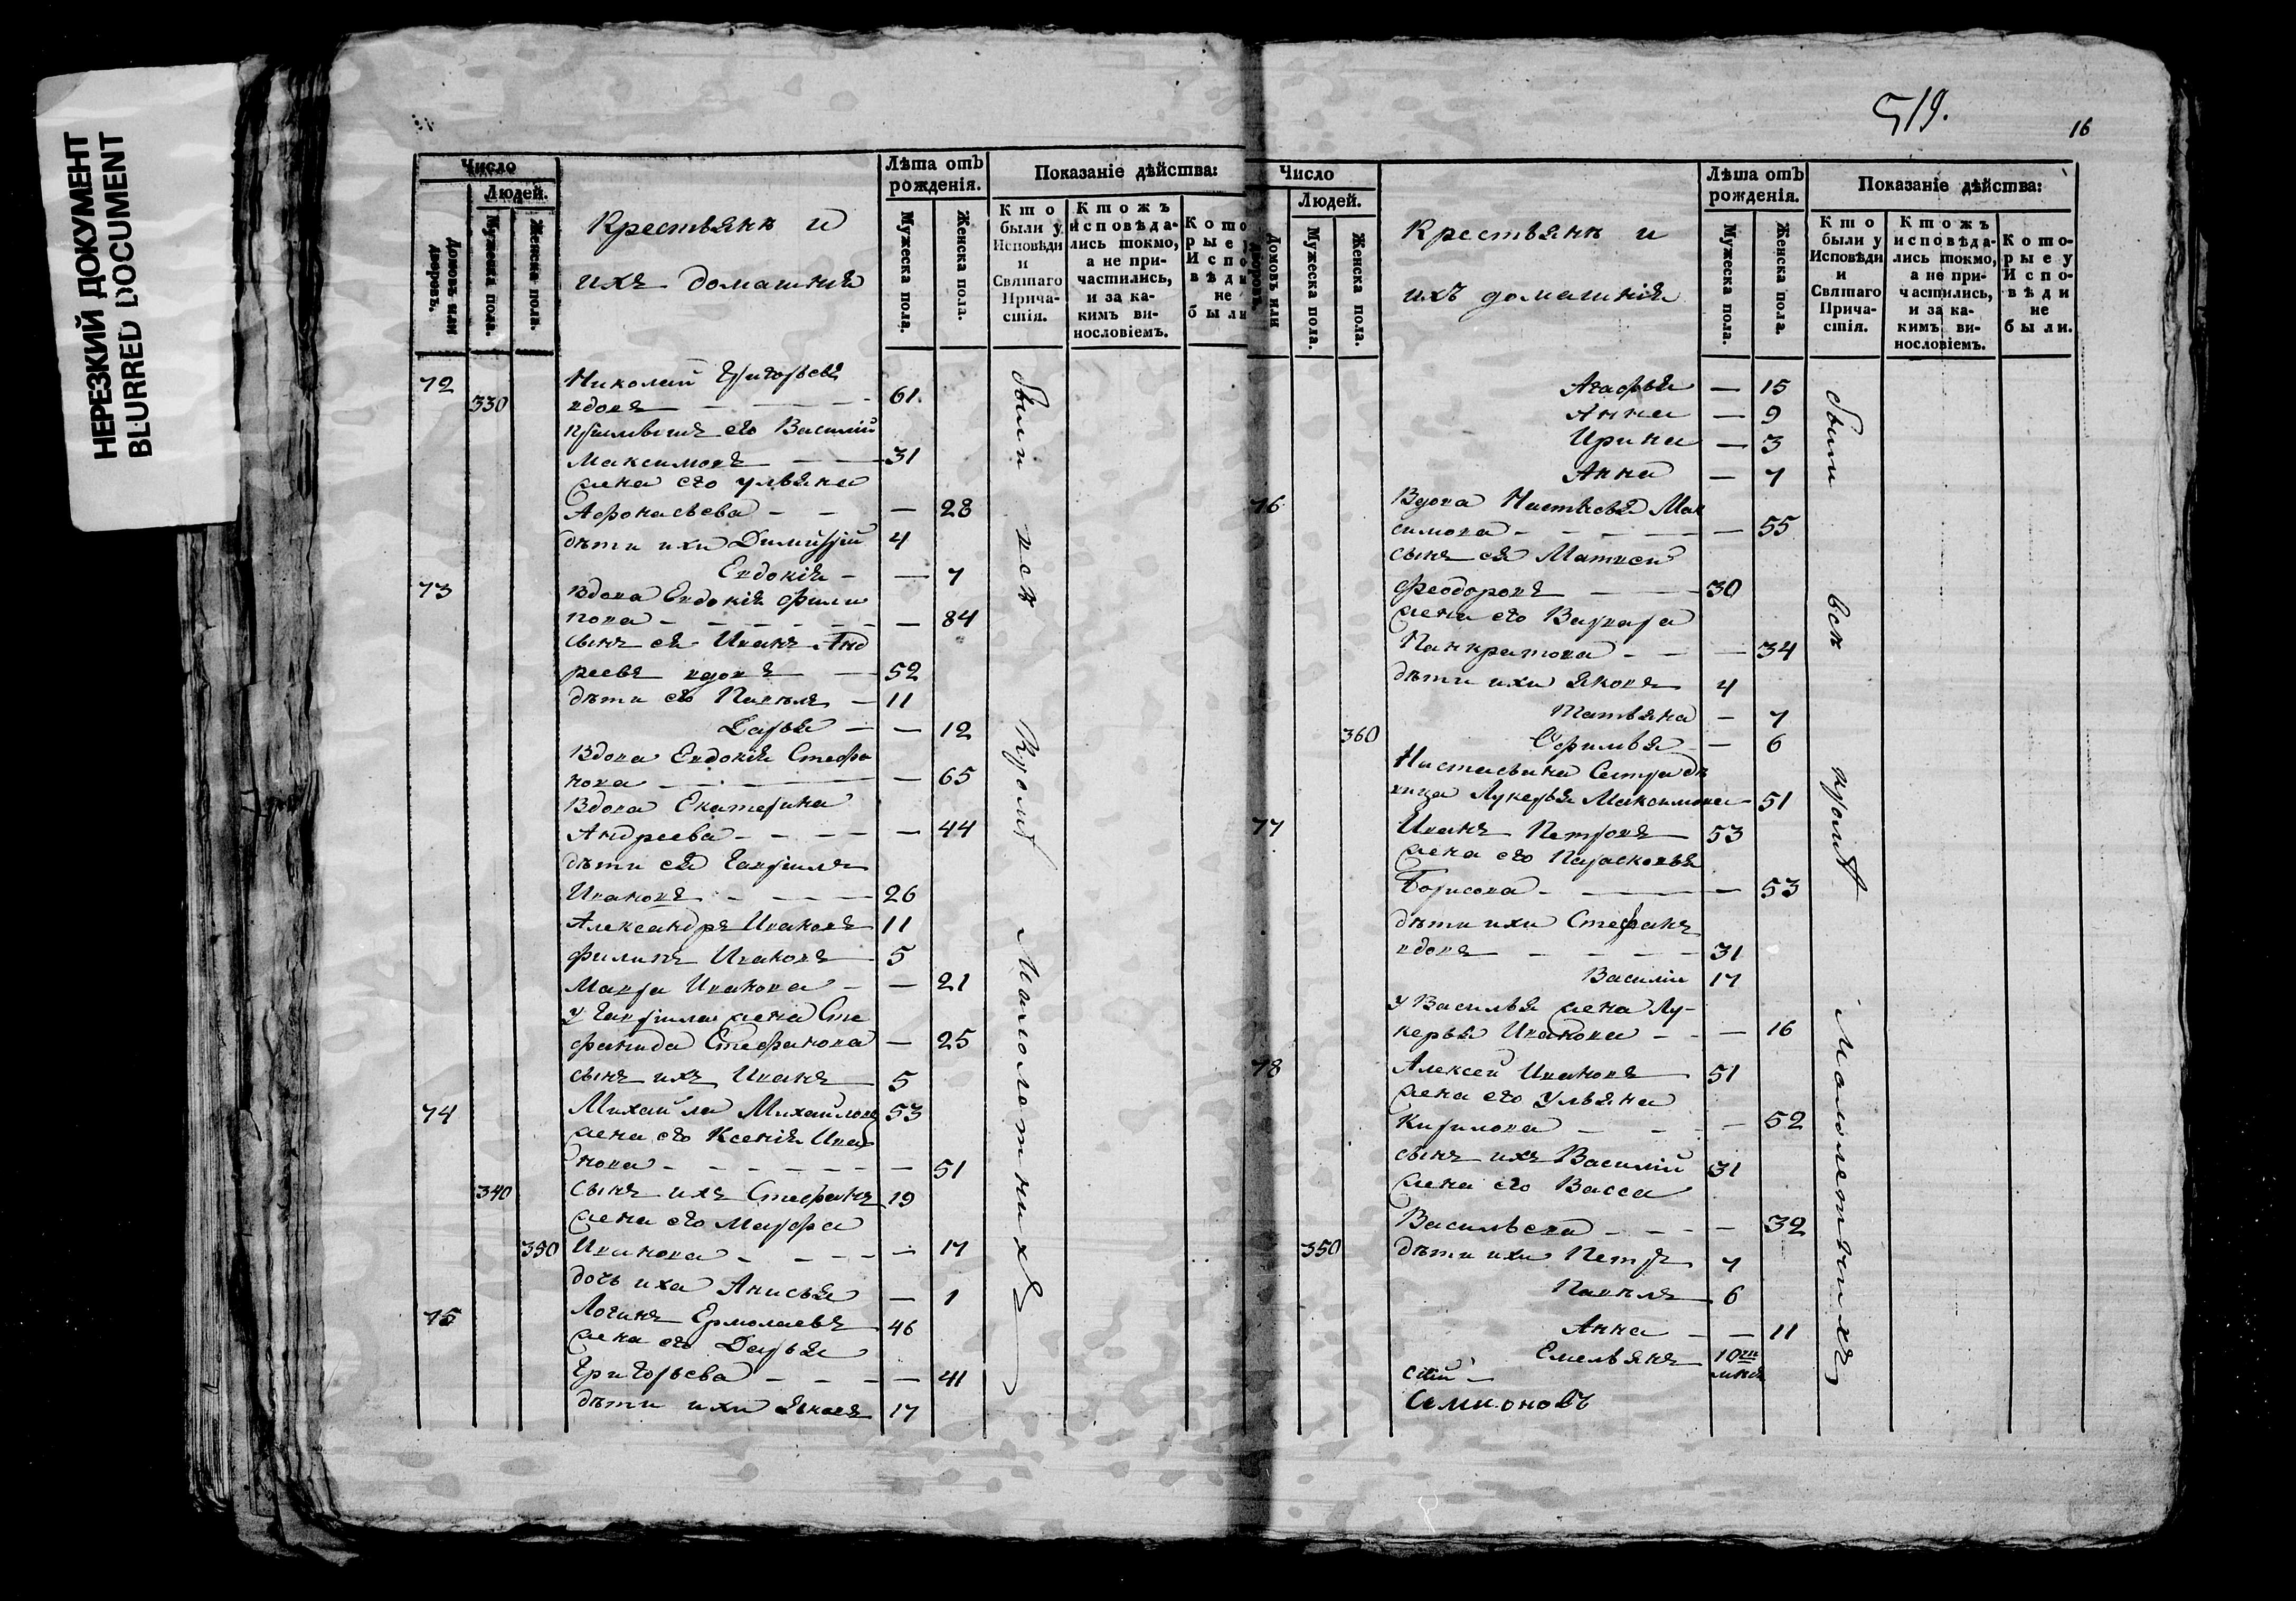 НЕРЕЗКИЙ ДОКУМЕНТ
BLURRED DOCUMENT
Число
Людей.
Домовъ или дворовъ.
Мужеска пола.
Женска пола.
Крестьянъ и
ихъ домашніе
Лѣта отъ рожденія.
Мужеска пола.
Женска пола.
Показаніе дѣйства:
Кто были у Исповѣди и Святаго Прича-стія.
Ктожъ исповѣда-лись токмо, а не при-частились, и за ка-кимъ ви-нословіемъ.
Кото рые у Испо вѣди не были
72 Николай Григорьевъ
330 вдовъ — 61.
Максимовъ — 31
жена его Ульяна
Афонасьева — — 28
дѣти ихъ Димитрій 4
Евдокія — — 7
73 Вдова Евдокія Фили
пова — — 84
сынъ ея Иванъ Анд
реевъ вдовъ — 52
дѣти его Павелъ — 11
Дарья — — 12
Вдова Евдокія Стефа
нова — — 65
Вдова Екатерина
Андреева — — 44
дѣти ея Гаврилъ
Ивановъ — 26
Александръ Ивановъ 11
Филипъ Ивановъ 5
Мавра Иванова — — 21
у Гаврилы жена Сте
фанида Стефанова — 25
сынъ ихъ Иванъ 5
74 Михайла Михайловъ 53
жена его Ксенія Ива
нова — — 51
340 сынъ ихъ Стефанъ 19
жена его Марфа
350 Иванова — — 17
дочь ихъ Анисья — 1
75 Логинъ Ермолаевъ 46
жена его Дарья
Григорьева — — 41
дѣти ихъ 17
были всѣ кромѣ Малолетнихъ
519.
16
Число
Людей.
Домовъ или дворовъ.
Мужеска пола.
Женска пола.
Крестьянъ и
ихъ домашнія
Лѣта отъ рожденія.
Мужеска пола.
Женска пола.
Показаніе дѣйства:
Кто были у Исповѣди и Святаго Прича-стія.
Ктожъ исповѣда-лись токмо, а не при-частились, и за ка-кимъ ви-нословіемъ.
Кото-рые у Испо-вѣди не были.
Агафья — 15
Анна — 9
Ирина — 3
Анна — 7
76 Вдова Настасья Мак
симова — — 55
сынъ ея Матвей
Феодоровъ — 30
жена его Варвара
Панкратова — — 34
дѣти ихъ Яковъ 4
Татьяна — 7
360 Офимья — 6
Настасьина Сестра дѣ
вица Лукерья Максимова — 51
77 Иванъ Петровъ 53
жена его Парасковья
Борисова — — 53
дѣти ихъ Стефанъ
вдовъ — 31
Василій 17
у Василья жена Лу-
керья Иванова — — 16
78 Алексей Ивановъ 51
жена его Ульяна
Кирилова — — 52
сынъ ихъ Василій 31
жена его Васса
Васильева — — 32
350 дѣти ихъ Петръ 7
Павелъ 6
Анна — — 11
Емельянъ 10ти мѣся
Симионовъ
были всѣ кромѣ Малолетнихъ